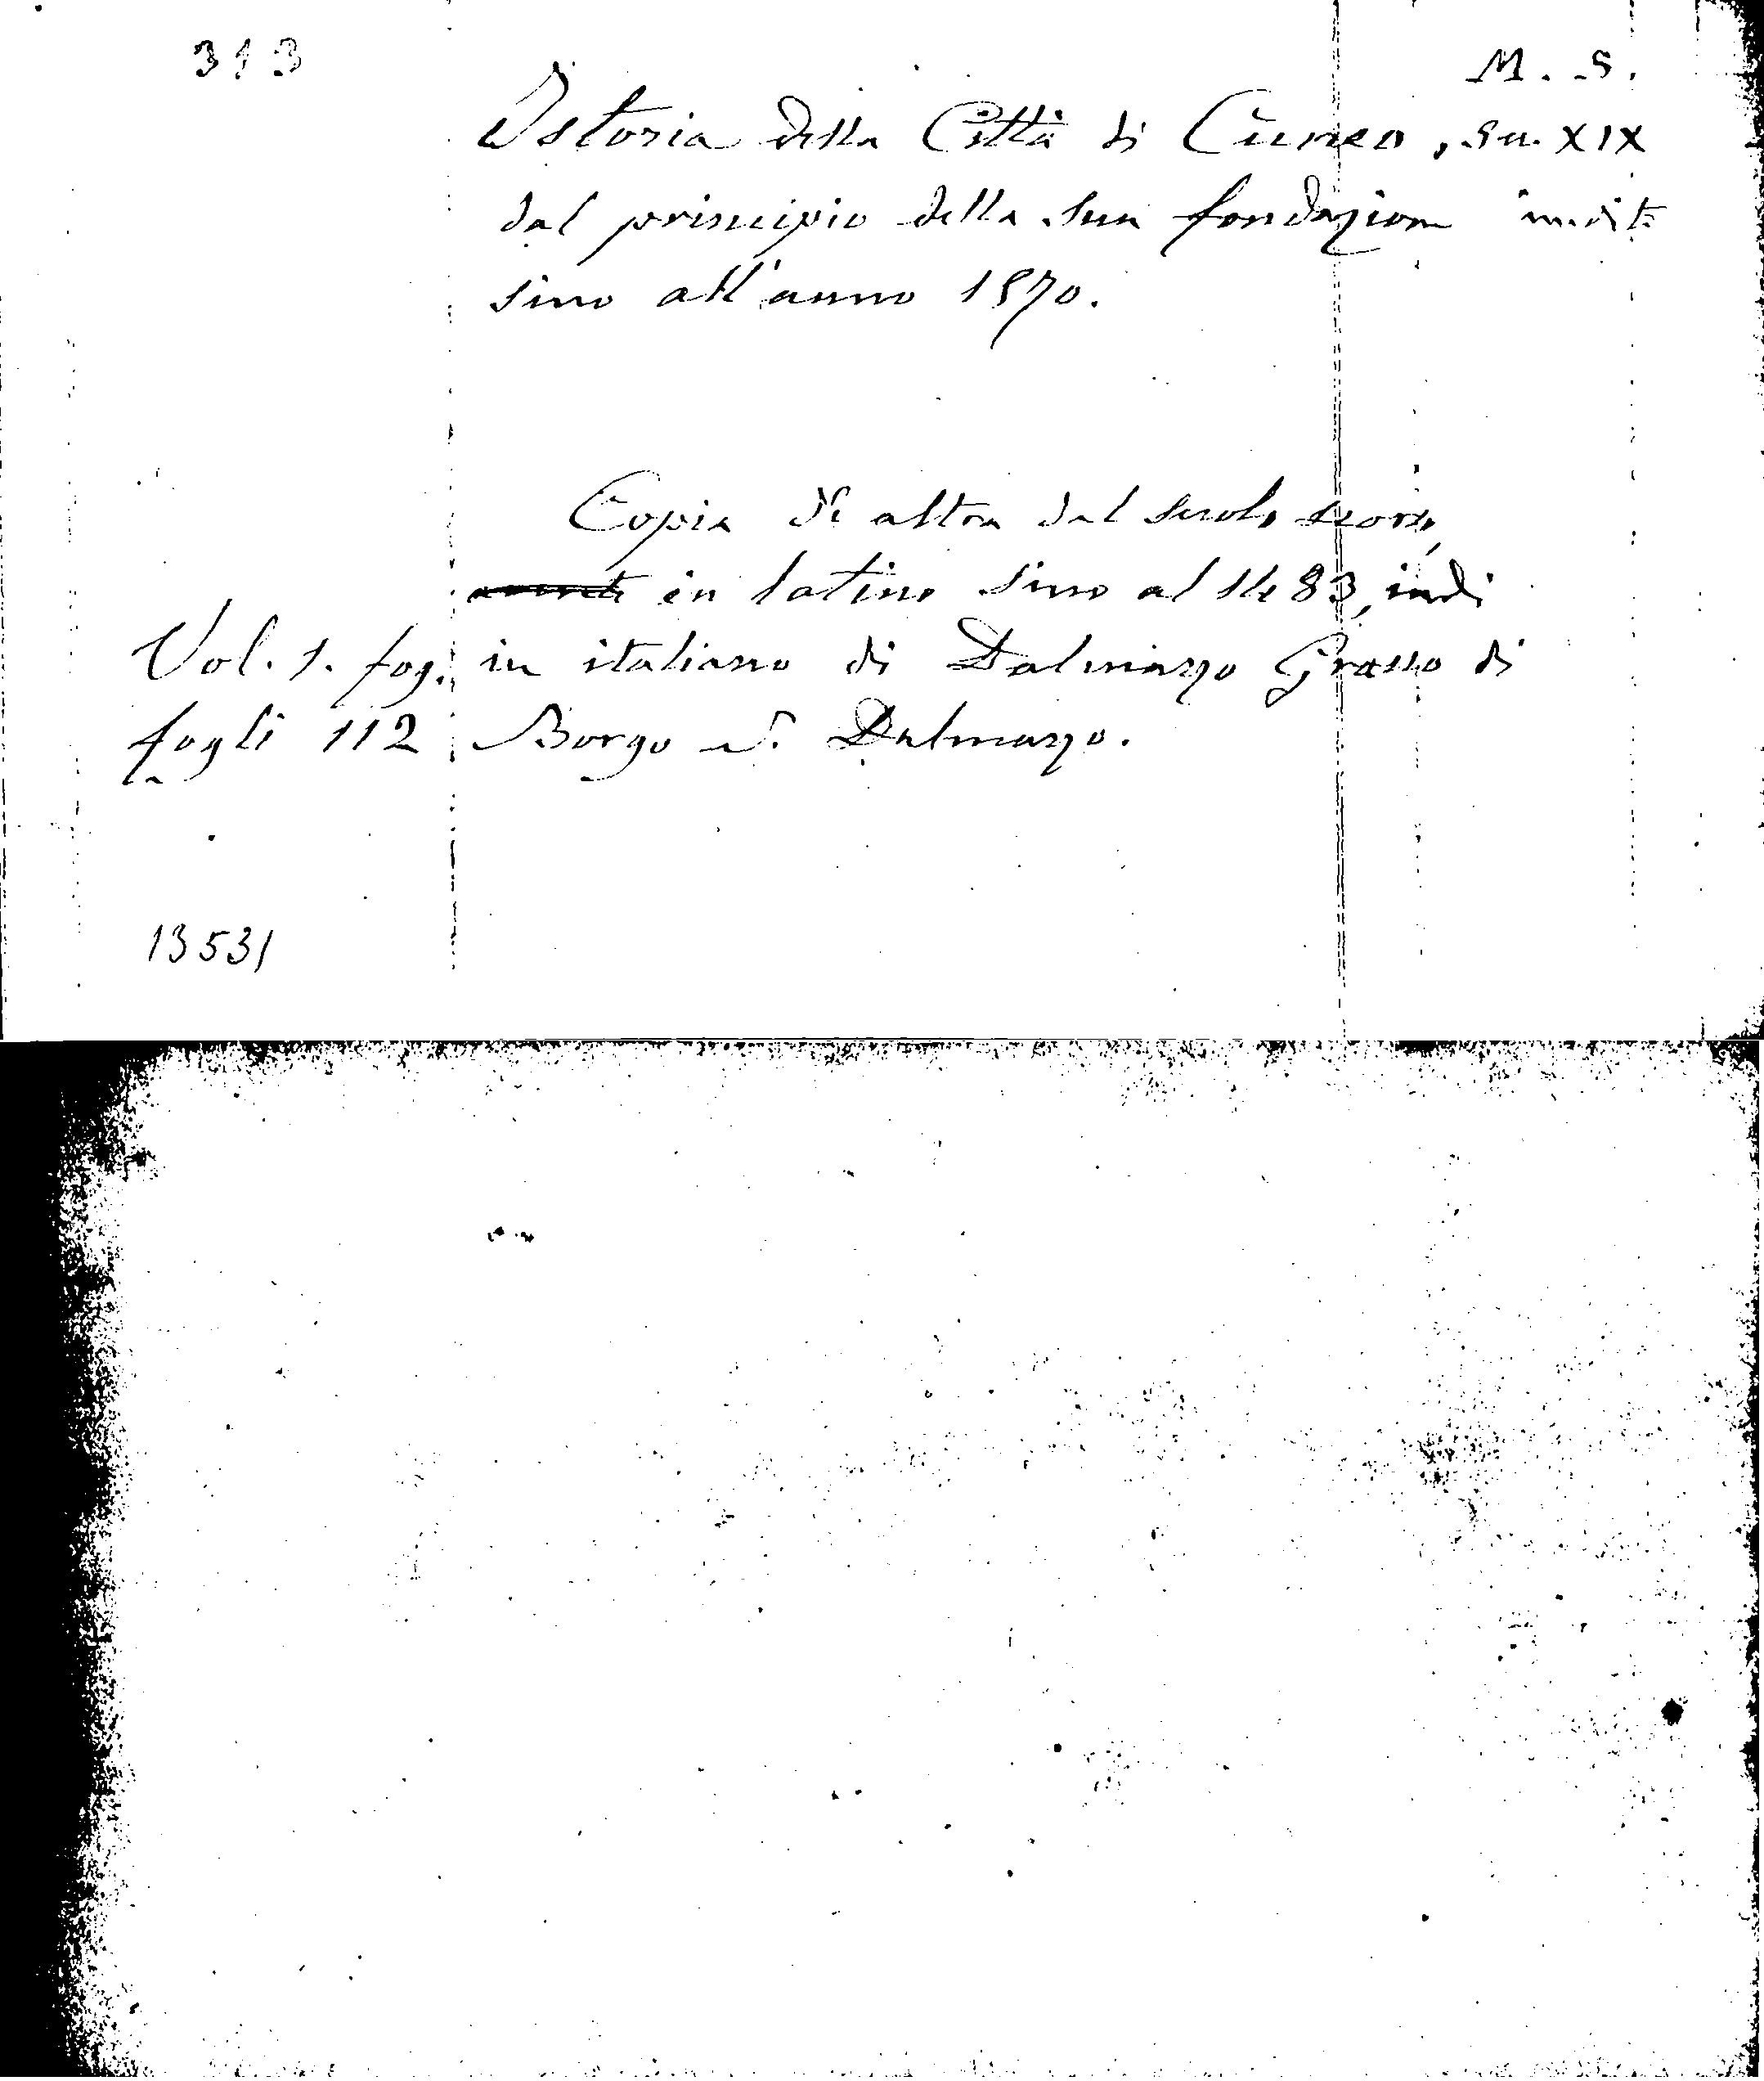 313
M. S.
Istoria della Città di Cuneo, sec. XIX
dal principio della sua fondazione inedita
sino all'anno 1570.
Copia di altra del secolo scorso,
in latino sino al 1483, indi
Vol. 1. fog. in italiano di Dalmazzo Grasso di
fogli 112 Borgo S. Dalmazzo.
13531